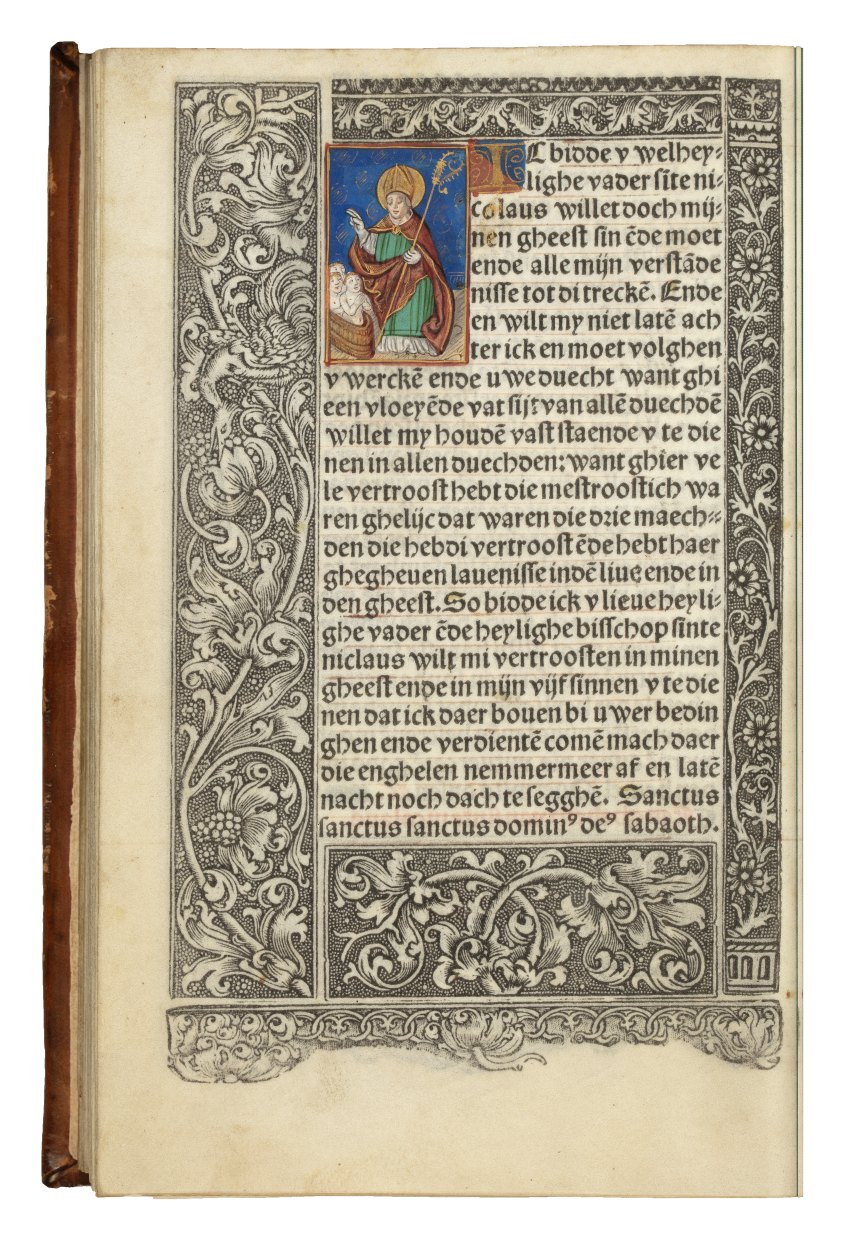 IC bidde v welhey⸗
lighe vader sīte ni⸗
colaus willet doch mij⸗
nen gheest sin ēde moet
ende alle mijn verstāde
nisse tot di treckē. Ende
en wilt my niet latē ach
ter ick en moet volghen
v werckē ende u we duecht want ghi
een vloeyēde vat sijt van allē duechdē
willet my houdē vast staende v te die
nen in allen duechden: want ghi er ve
le vertroost hebt die mestroostich wa
ren ghelijc dat waren die drie maech⸗
den die hebdi vertroost ēde hebt haer
ghegheuen lauenisse indē liue ende in
den gheest. So bidde ick v lieue heyli⸗
ghe vader ēde heylighe bisschop sinte
niclaus wilt mi vertroosten in minen
gheest ende in mijn vijf sinnen v te die
nen dat ick daer bouen bi u wer bedin
ghen ende verdientē comē mach daer
die enghelen nemmermeer af en latē
nacht noch dach te segghē. Sanctus
sanctus sanctus dominꝰ deꝰ sabaoth.